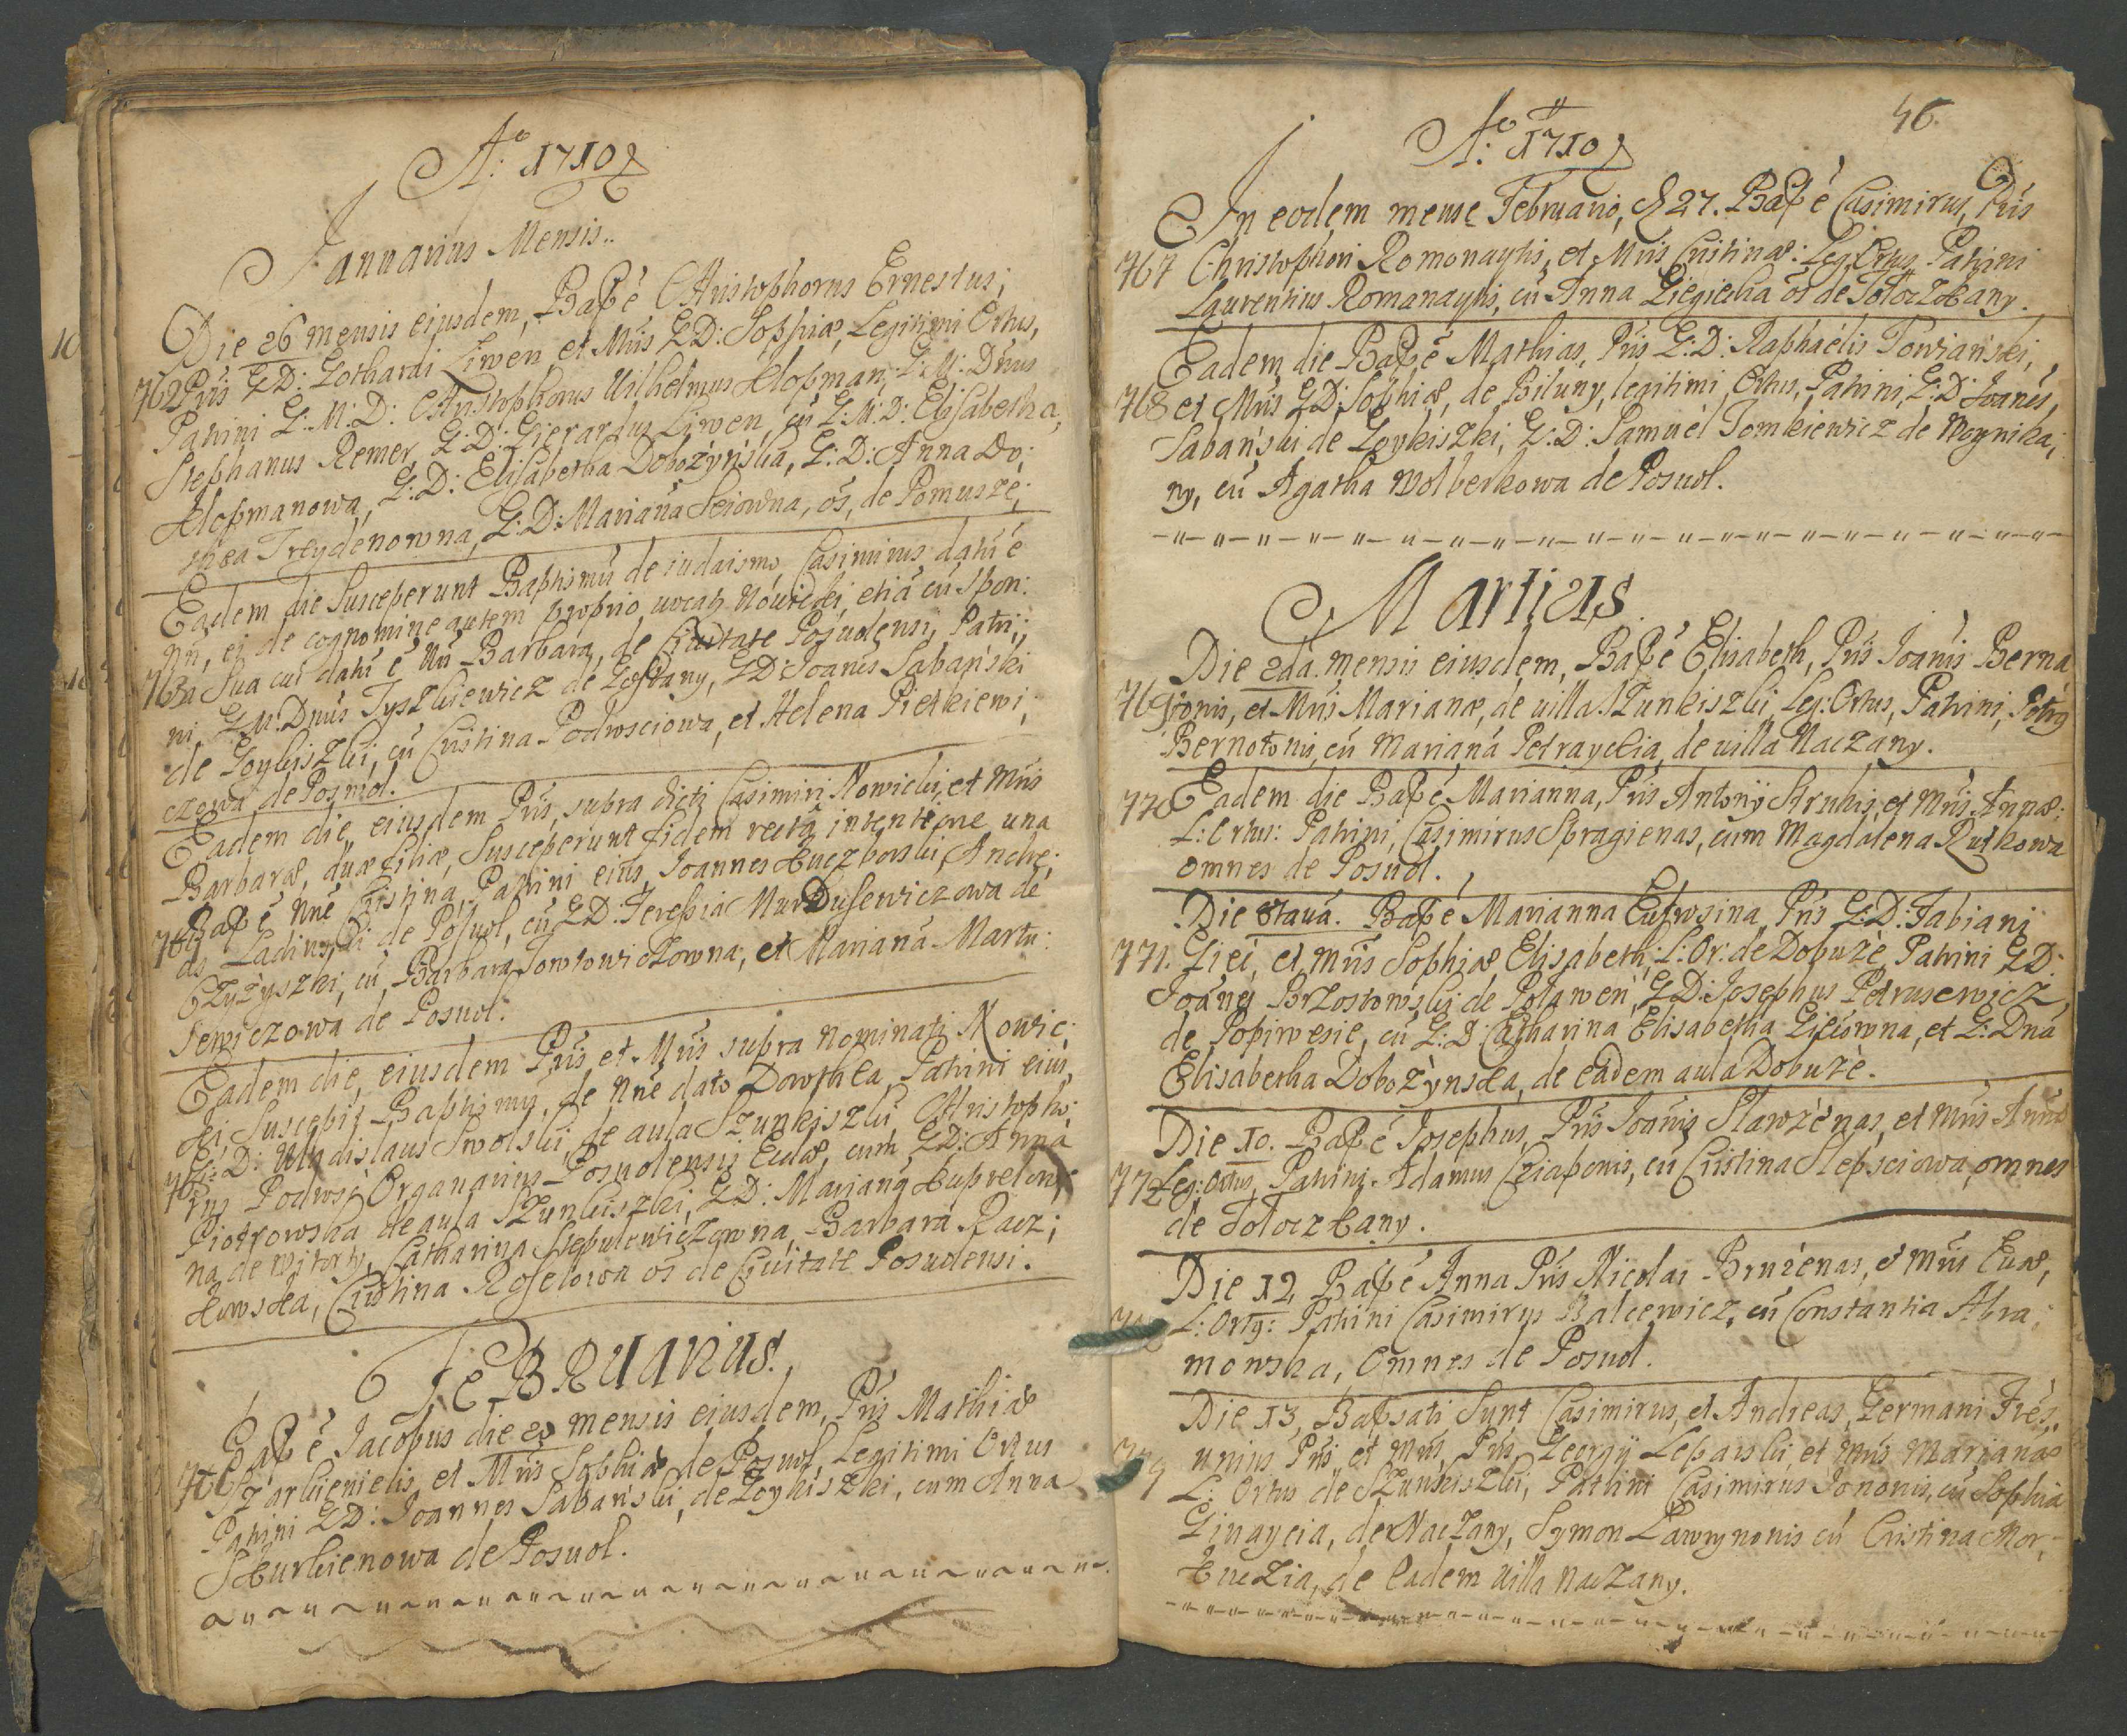 Aº: 1710
Januarius Mensis..
Die 26 mensis eiusdem, Bapt é Christophorus Ernestus;
762 Pris GD: Gothardi Liwen et Mris GD: Sophiæ, Legitimi Ortus,
Patrini G: M: D: Christophorus Wilhelmus Klopman, G: M: Dnus
Stephanus Remer, G: D: Gierardus Liwen, cū G: M: D: Elisabetha
Klopmanowa, G: D: Elisabetha Dobożyńska, G: D: Anna Do;
Treydenowna, G: D: Mariana oēs, de Pomusze;
Eadem die Susceperunt Baptismū de iudaismo Casimirus datū é
ei de cognomine autem proprio uocatq Nowicki, etiā cū Spon:
763 sa Sua cui datū é Nn Barbara, de Ciuitate Posuolensi, Patri;
ni, G: M: Dnus Tyszkiewicz de GD: Ioanes Sabański
de Goykiszki, cū Cristina Podwsciowa, et Helena Pietkiewi,
czowa de Posuol.
Eadem die, eiusdem Pris, supra dicti Casimiri Nowicki, et Mris
Barbaræ, duæ filiæ, Susceperunt fidem recta intentione una
764 Bapt é Nne Cristina, Patrini eius, Joannes Kuczborski, Andre;
as de Posuol, cū GD. Teressia Mardusewiczowa de
Czyżyszki, cū Barbara Towtowiczowna, et Mariana Martu:
sewiczowa de Posuol.
Eadem die, eiusdem Pris et Mris supra nominati Nowic:
ki, Suscepit Baptismū, de Nne dato Dorothea, Patrini eius,
765 G: D: Uladislaus Swolski, de aula Szunkiszki, Christopho:
rus Podwsc Organarius Posuolensis Eccłæ, cum GD: Anna
Piotrowska de aula Szunkiszki, GD: Mariana
na de Witorty, Catharina Stepulewiczowna, Barbara Racz;
kowska, Cristina Rosełowa oēs de Ciuitate Posuolensi.
FeBRuarius.
Bapt é Jacobus die 2º mensis eiusdem, Pris Mathiæ
766 Szarkienielis, et Mris Sophiæ de Posuol, Legitimi Ortus
Patrini GD: Joannes Sabański, de Goykiszki, cum Anna
Skurkienowa de Posuol.
46
Aº: 1710
In eodem mense Februario, D 27. Bapt é Casimirus, Pris
767 Christophori Romonaytis, et Mris Cristinæ: Leg Ortus Patrini
Laurentius Romanaytis, cū Anna Giegiecka oēs de Tołoczkany.
Eadem die Bapt é Mathias, Pris G: D: Raphaēlis Towiański,
768 et Mris GD: Sophiæ, de Biluny, legitimi Ortus, Patrini, G: D: Joanes,
Sabański de Goykiszki, G: D: Samuēl Tomkiewicz de Woynika;
ny, cū Agatha Wolberkowa de Posuol.
Martius.
Die 2da mensis eiusdem, Bapt é Elisabeth, Pris Joanis Berna
769 tonis, et Mris Marianæ, de uilla Szunkiszki, Leg: Ortus, Patrini, Petrq
Bernotonis, cū Mariana Petraycia, de uilla Naczany.
770 Eadem die Bapt é Marianna, Pris Antonij Strukis, et Mris Annæ:
L: Ortus: Patrini, Casimirus Spragienas, cum Magdalena Rutkowa
omnes de Posuol.
Die 8taua. Bapt é Marianna Eufrosina, Pris G: D: Fabiani
771. Gieć, et Mris Sophiæ Elisabeth; L: Or: de Dobuże, Patrini GD.
Joanes Brzostowski de Polawen, GD: Josephus Petrusewicz
de Popiwesie, cū G: D: Catharina Elisabetha Giecowna, et G: Dna
Elisabetha Dobożynska, de eadem aula Dobuże.
Die 10. Bapt é Josephus, Pris Joanis Stawżenas, et Mris Annæ
772 Leg: Ortus, Patrini. Adamus Cziaponis, cū Cristina Slepsciowa, omnes
de Tołoczkany.
Die 12, Bapt é Anna Pris Nicolai Brużenas, et Mris Euæ,
L: Ortq: Patrini Casimirus Balcewicz, cū Constantia Abra:
mowska, Omnes de Posuol.
Die 13, Baptsati Sunt Casimirus, et Andreas, Germani Fres,
unius Pris, et Mris, Pris Georgij Leparski, et Mris Marianæ
L: Ortus de Szunkiszki, Patrini Casimirus Jononis, cū Sophia
Ginaycia, de Naczany, Symon Ławrynonis cū Cristina Mor,
kuczia, de eadem uilla Naczany.